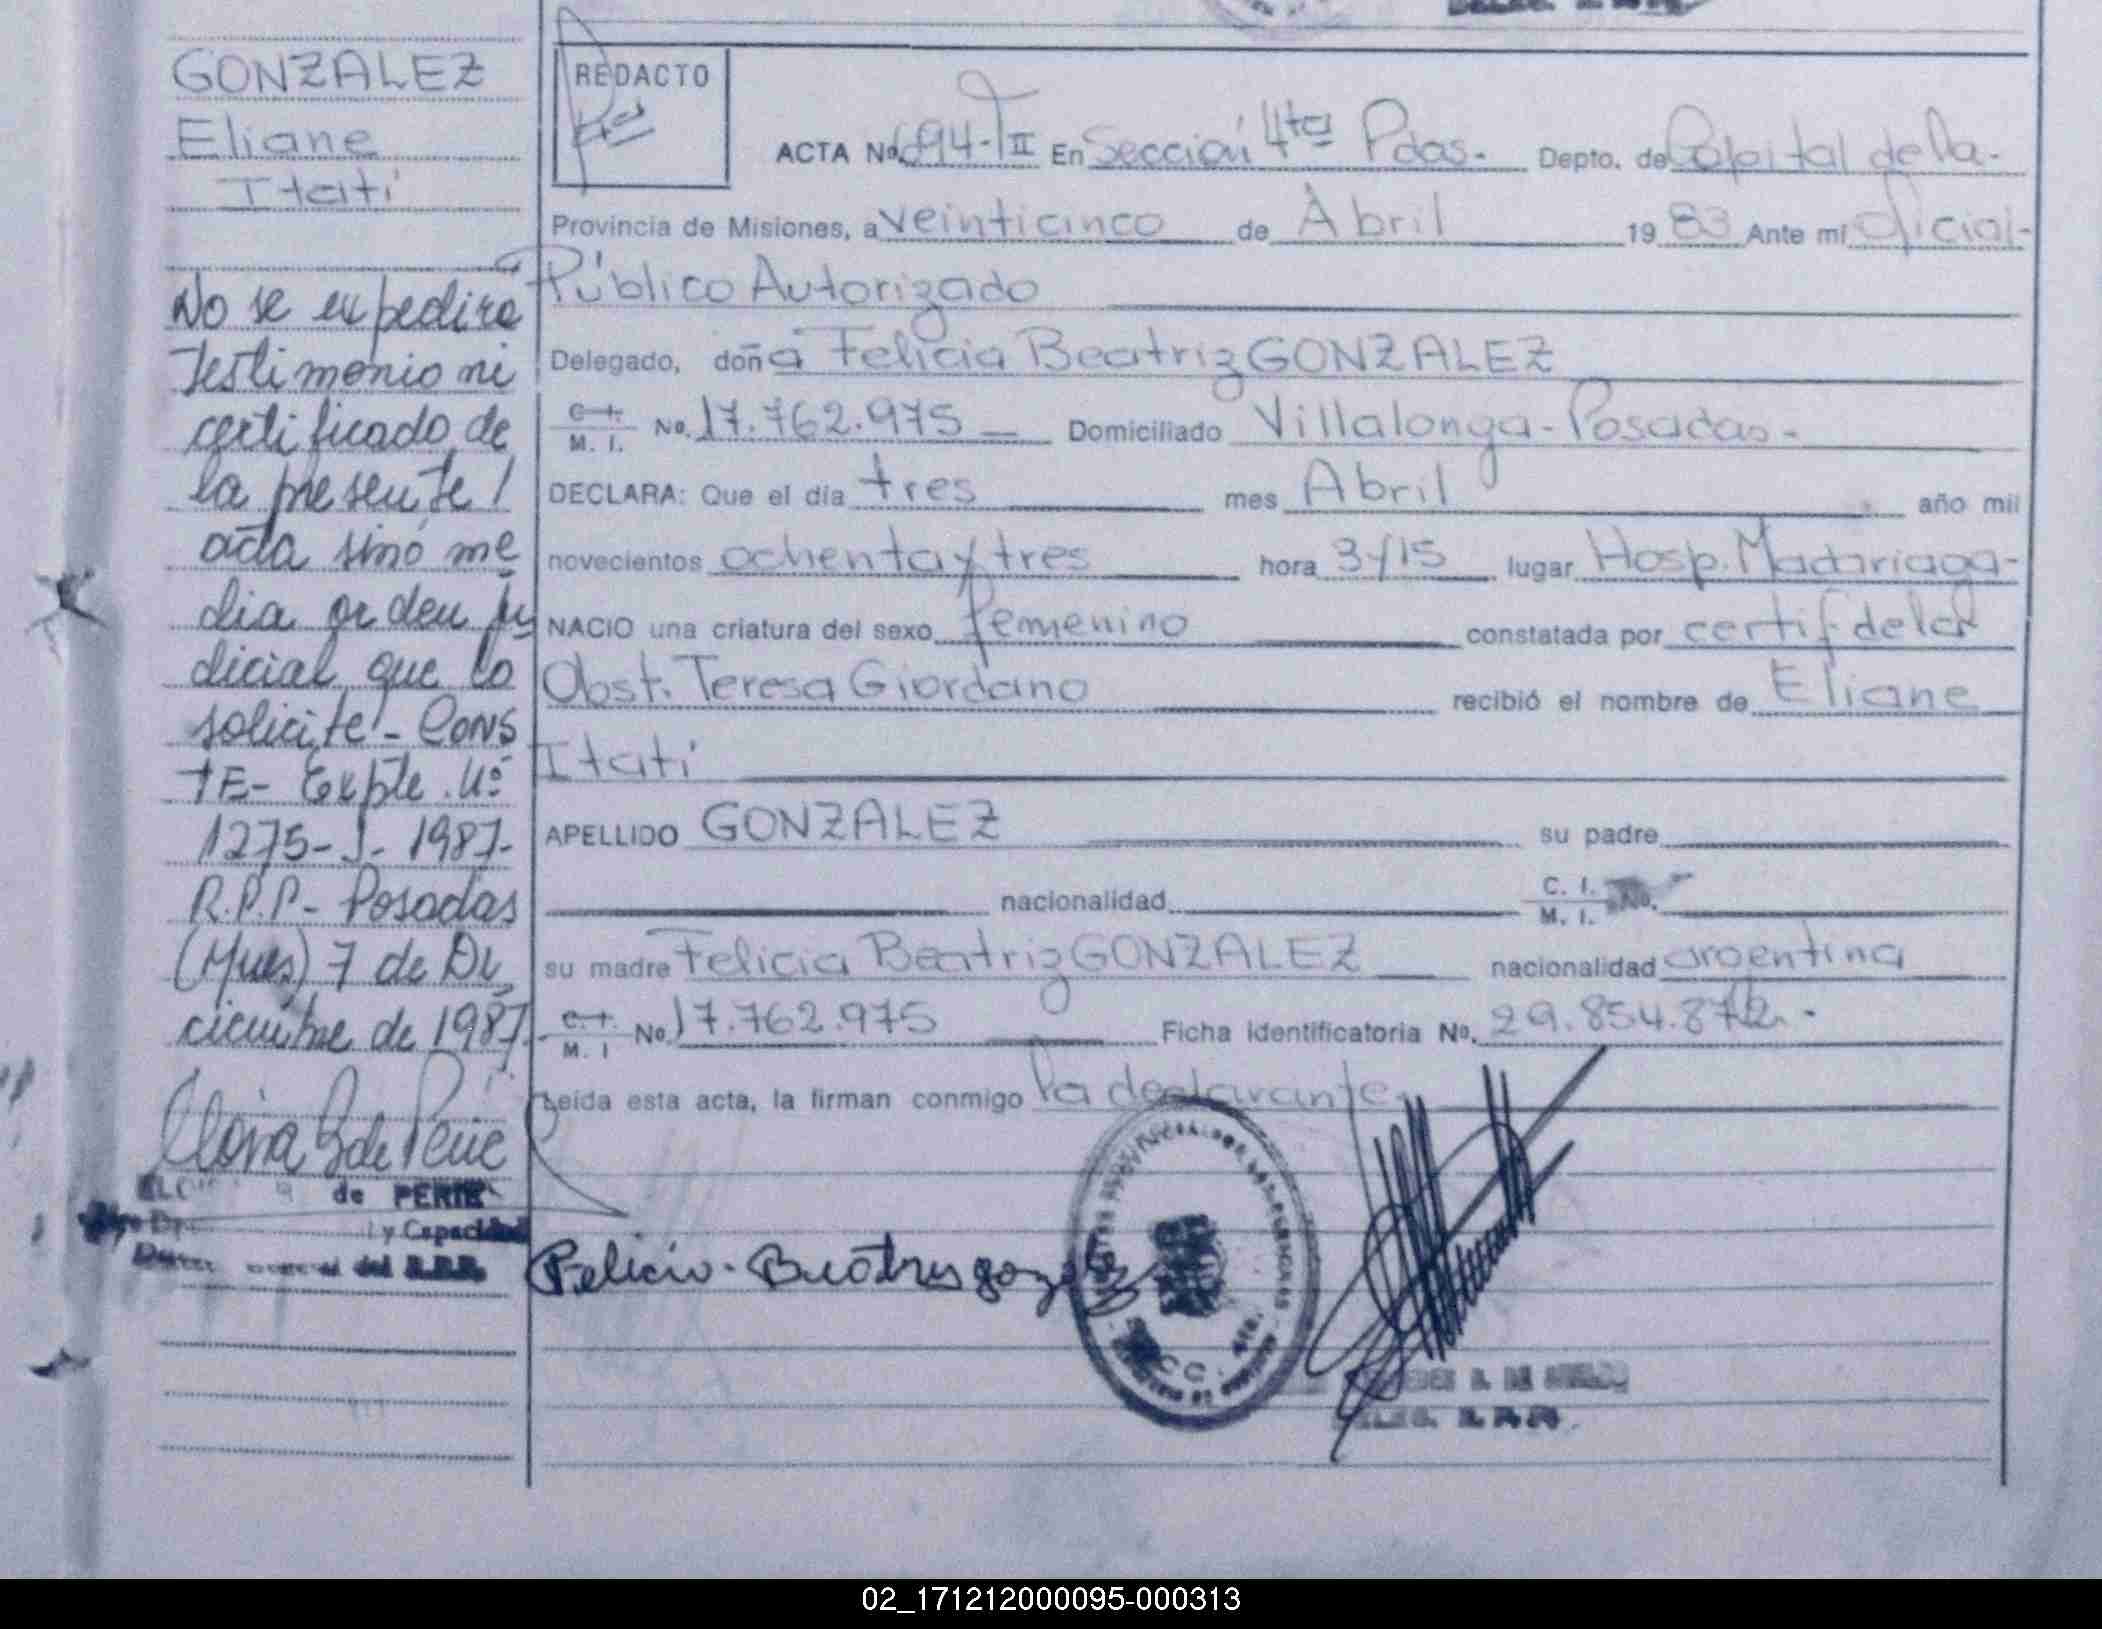 GONZALEZ
Eliane
Itatí
No se expedira
Testimonio ni
certificado de
la presente
acta sinó me
dia orden ju
dicial que lo
solicite!- CONS
TE- Expte. Nº
1275-J- 1987-
R.P.P- Posadas
(Mnes) 7 de Di
ciembre de 1987.
de PERIE
y Capacidad
REDACTO
ACTA No. 694-TII En Sección 4ta Pdas.- Depto. de Capital de la-
Provincia de Misiones, a veinticinco de Abril 1983 Ante mí Oficial-
Público Autorizado
Delegado, doña Felicia Beatriz GONZALEZ
C.I. M. I. No. 17.762.975 Domiciliado Villalonga-Posadas-
DECLARA: Que el día tres mes Abril año mil
novecientos ochenta y tres hora 3y15 lugar Hosp. Madariaga-
NACIO una criatura del sexo femenino constatada por certif de la
Obst. Teresa Giordano recibió el nombre de Eliane
Itatí
APELLIDO GONZALEZ su padre
nacionalidad C. I. M. I. No.
su madre Felicia Beatriz GONZALEZ nacionalidad argentina
C.I. M. I No. 17.762.975 Ficha Identificatoria No. 29.854.872.-
Leída esta acta, la firman conmigo la declarante
Felicia Beatris gonzalez
02_171212000095-000313